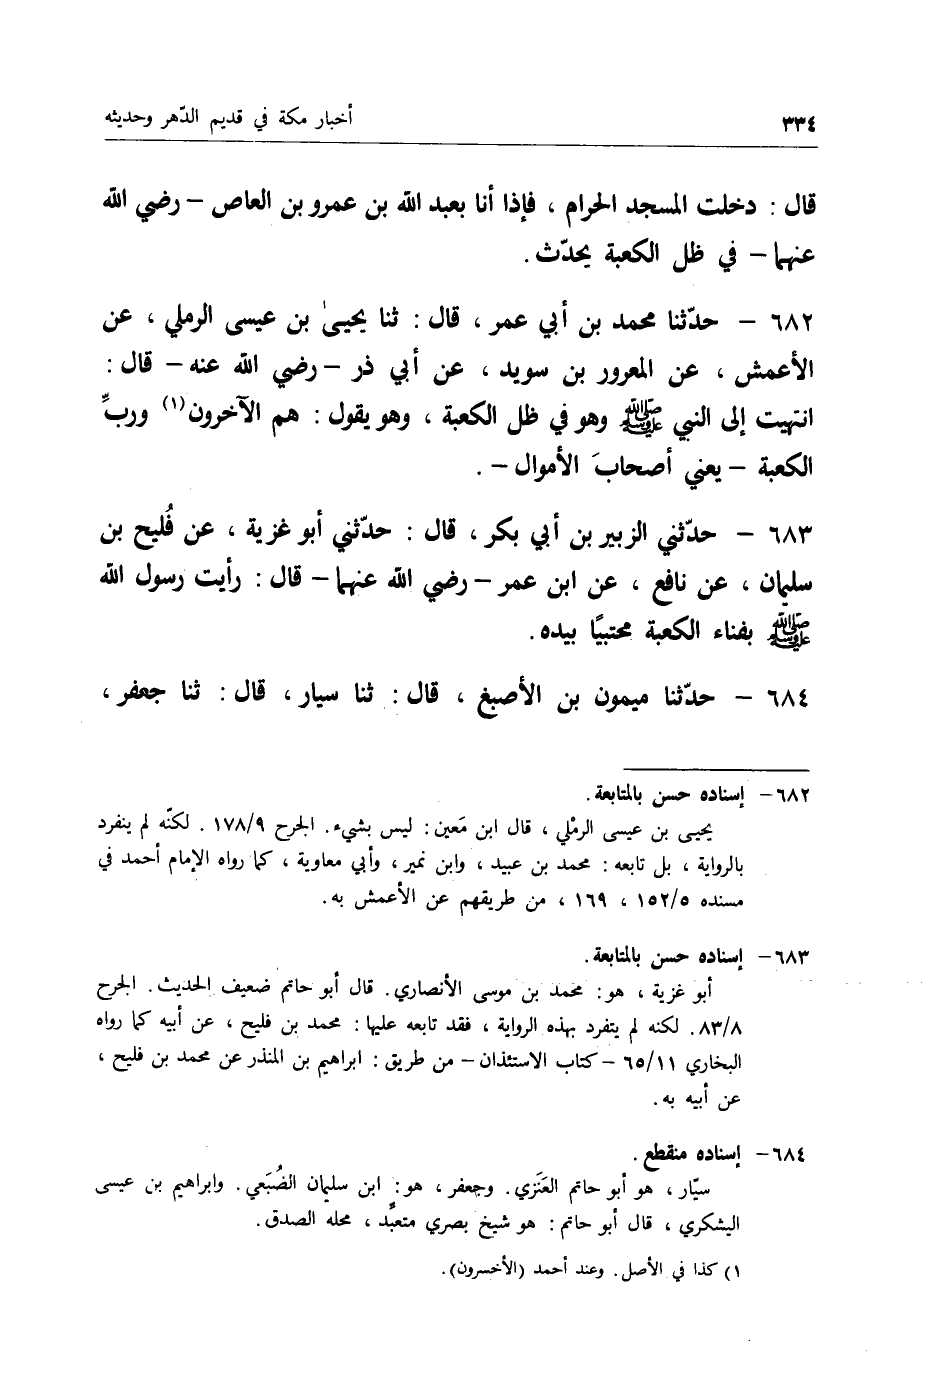 ٣٣٤ أخبار مكة في قديم الدّهر وحديثه
قال : دخلت المسجد الحرام ، فإذا أنا بعبد الله بن عمرو بن العاص – رضي الله
عنهما – في ظل الكعبة يحدّث .
٦٨٢ – حدّثنا محمد بن أبي عمر ، قال : ثنا يحيىٰ بن عيسى الرملي ، عن
الأعمش ، عن المعرور بن سويد ، عن أبي ذر – رضي الله عنه – قال :
انتهيت إلى النبي ﷺ وهو في ظل الكعبة ، وهو يقول : هم الآخرون(١) وربِّ
الكعبة – يعني أصحابَ الأموال – .
٦٨٣ – حدّثني الزبير بن أبي بكر ، قال : حدّثني أبو غزية ، عن فُليح بن
سليمان ، عن نافع ، عن ابن عمر – رضي الله عنهما – قال : رأيت رسول الله
ﷺ بفناء الكعبة محتبيًا بيده .
٦٨٤ – حدّثنا ميمون بن الأصبغ ، قال : ثنا سيار ، قال : ثنا جعفر ،
٦٨٢ – إسناده حسن بالمتابعة .
يحيى بن عيسى الرمْلي ، قال ابن مَعين : ليس بشيء . الجرح ١٧٨/٩ . لكنّه لم ينفرد
بالرواية ، بل تابعه : محمد بن عبيد ، وابن نمير ، وأبي معاوية ، كما رواه الإمام أحمد في
مسنده ١٥٢/٥ ، ١٦٩ ، من طريقهم عن الأعمش به .
٦٨٣ – إسناده حسن بالمتابعة .
أبو غزية ، هو : محمد بن موسى الأنصاري . قال أبو حاتم ضعيف الحديث . الجرح
٨٣/٨ . لكنه لم يتفرد بهذه الرواية ، فقد تابعه عليها : محمد بن فليح ، عن أبيه كما رواه
البخاري ٦٥/١١ – كتاب الاستئذان – من طريق : ابراهيم بن المنذر عن محمد بن فليح ،
عن أبيه به .
٦٨٤ – إسناده منقطع .
سيّار ، هو أبو حاتم العَنَزي . وجعفر ، هو : ابن سليمان الضُبَعي . وابراهيم بن عيسى
اليشكري ، قال أبو حاتم : هو شيخ بصري متعبِّد ، محله الصدق .
١) كذا في الأصل . وعند أحمد (الأخسرون) .